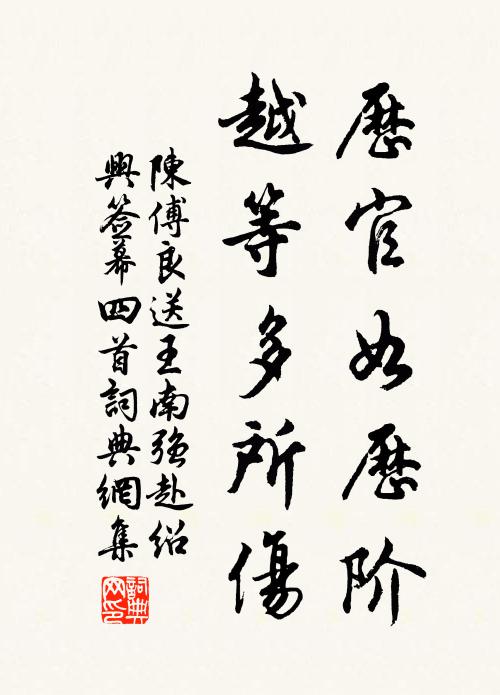 歷官如歷阶
越等多所傷
陳傅良送王南強赴紹
興簽幕四首詞典網集
詞典
网印